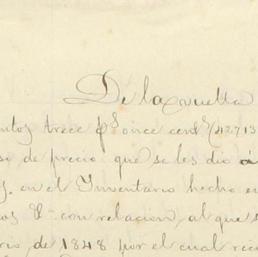 De la vuelta
ntos trece p.s once cent.s (42713
si de precio que se les dio á
en el Ynventario hecho en
os con relacion, al que s
rio, de 1848 por el cual reci